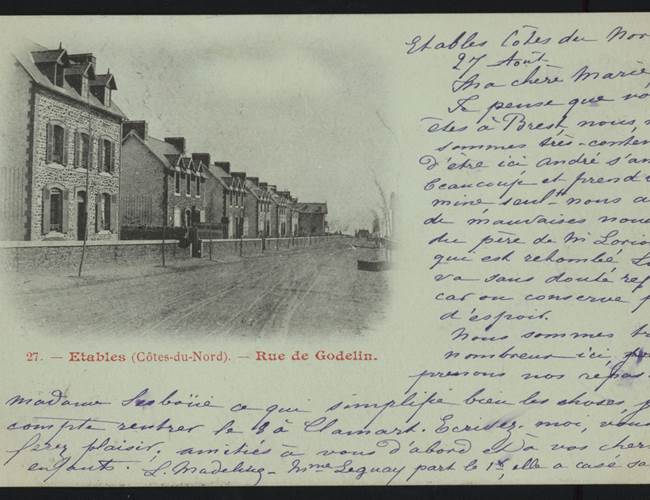 Etables Côtes du Nor
27 Août
Ma chère Marie
Je pense que vo
êtes à Brest, nous
sommes très-conten
d'être ici andré s'am
beaucoup et prend
mine seul-nous a
de mauvaises nouv
du père de Mr
qui est retombé
va sans doute rep
car on conserve p
d'espoir.
Nous sommes tr
nombreux ici,
prenons nos repas
27. — Etables (Côtes-du-Nord). — Rue de Godelin.
madame ce que simplifie bien les choses, j
compte rentrer le 9 à Clamart. Ecrivez-moi, vous
ferez plaisir. amitiés à vous d'abord et à vos cher
enfants. L. Mme Leguay part le 1er, elle a casé sa